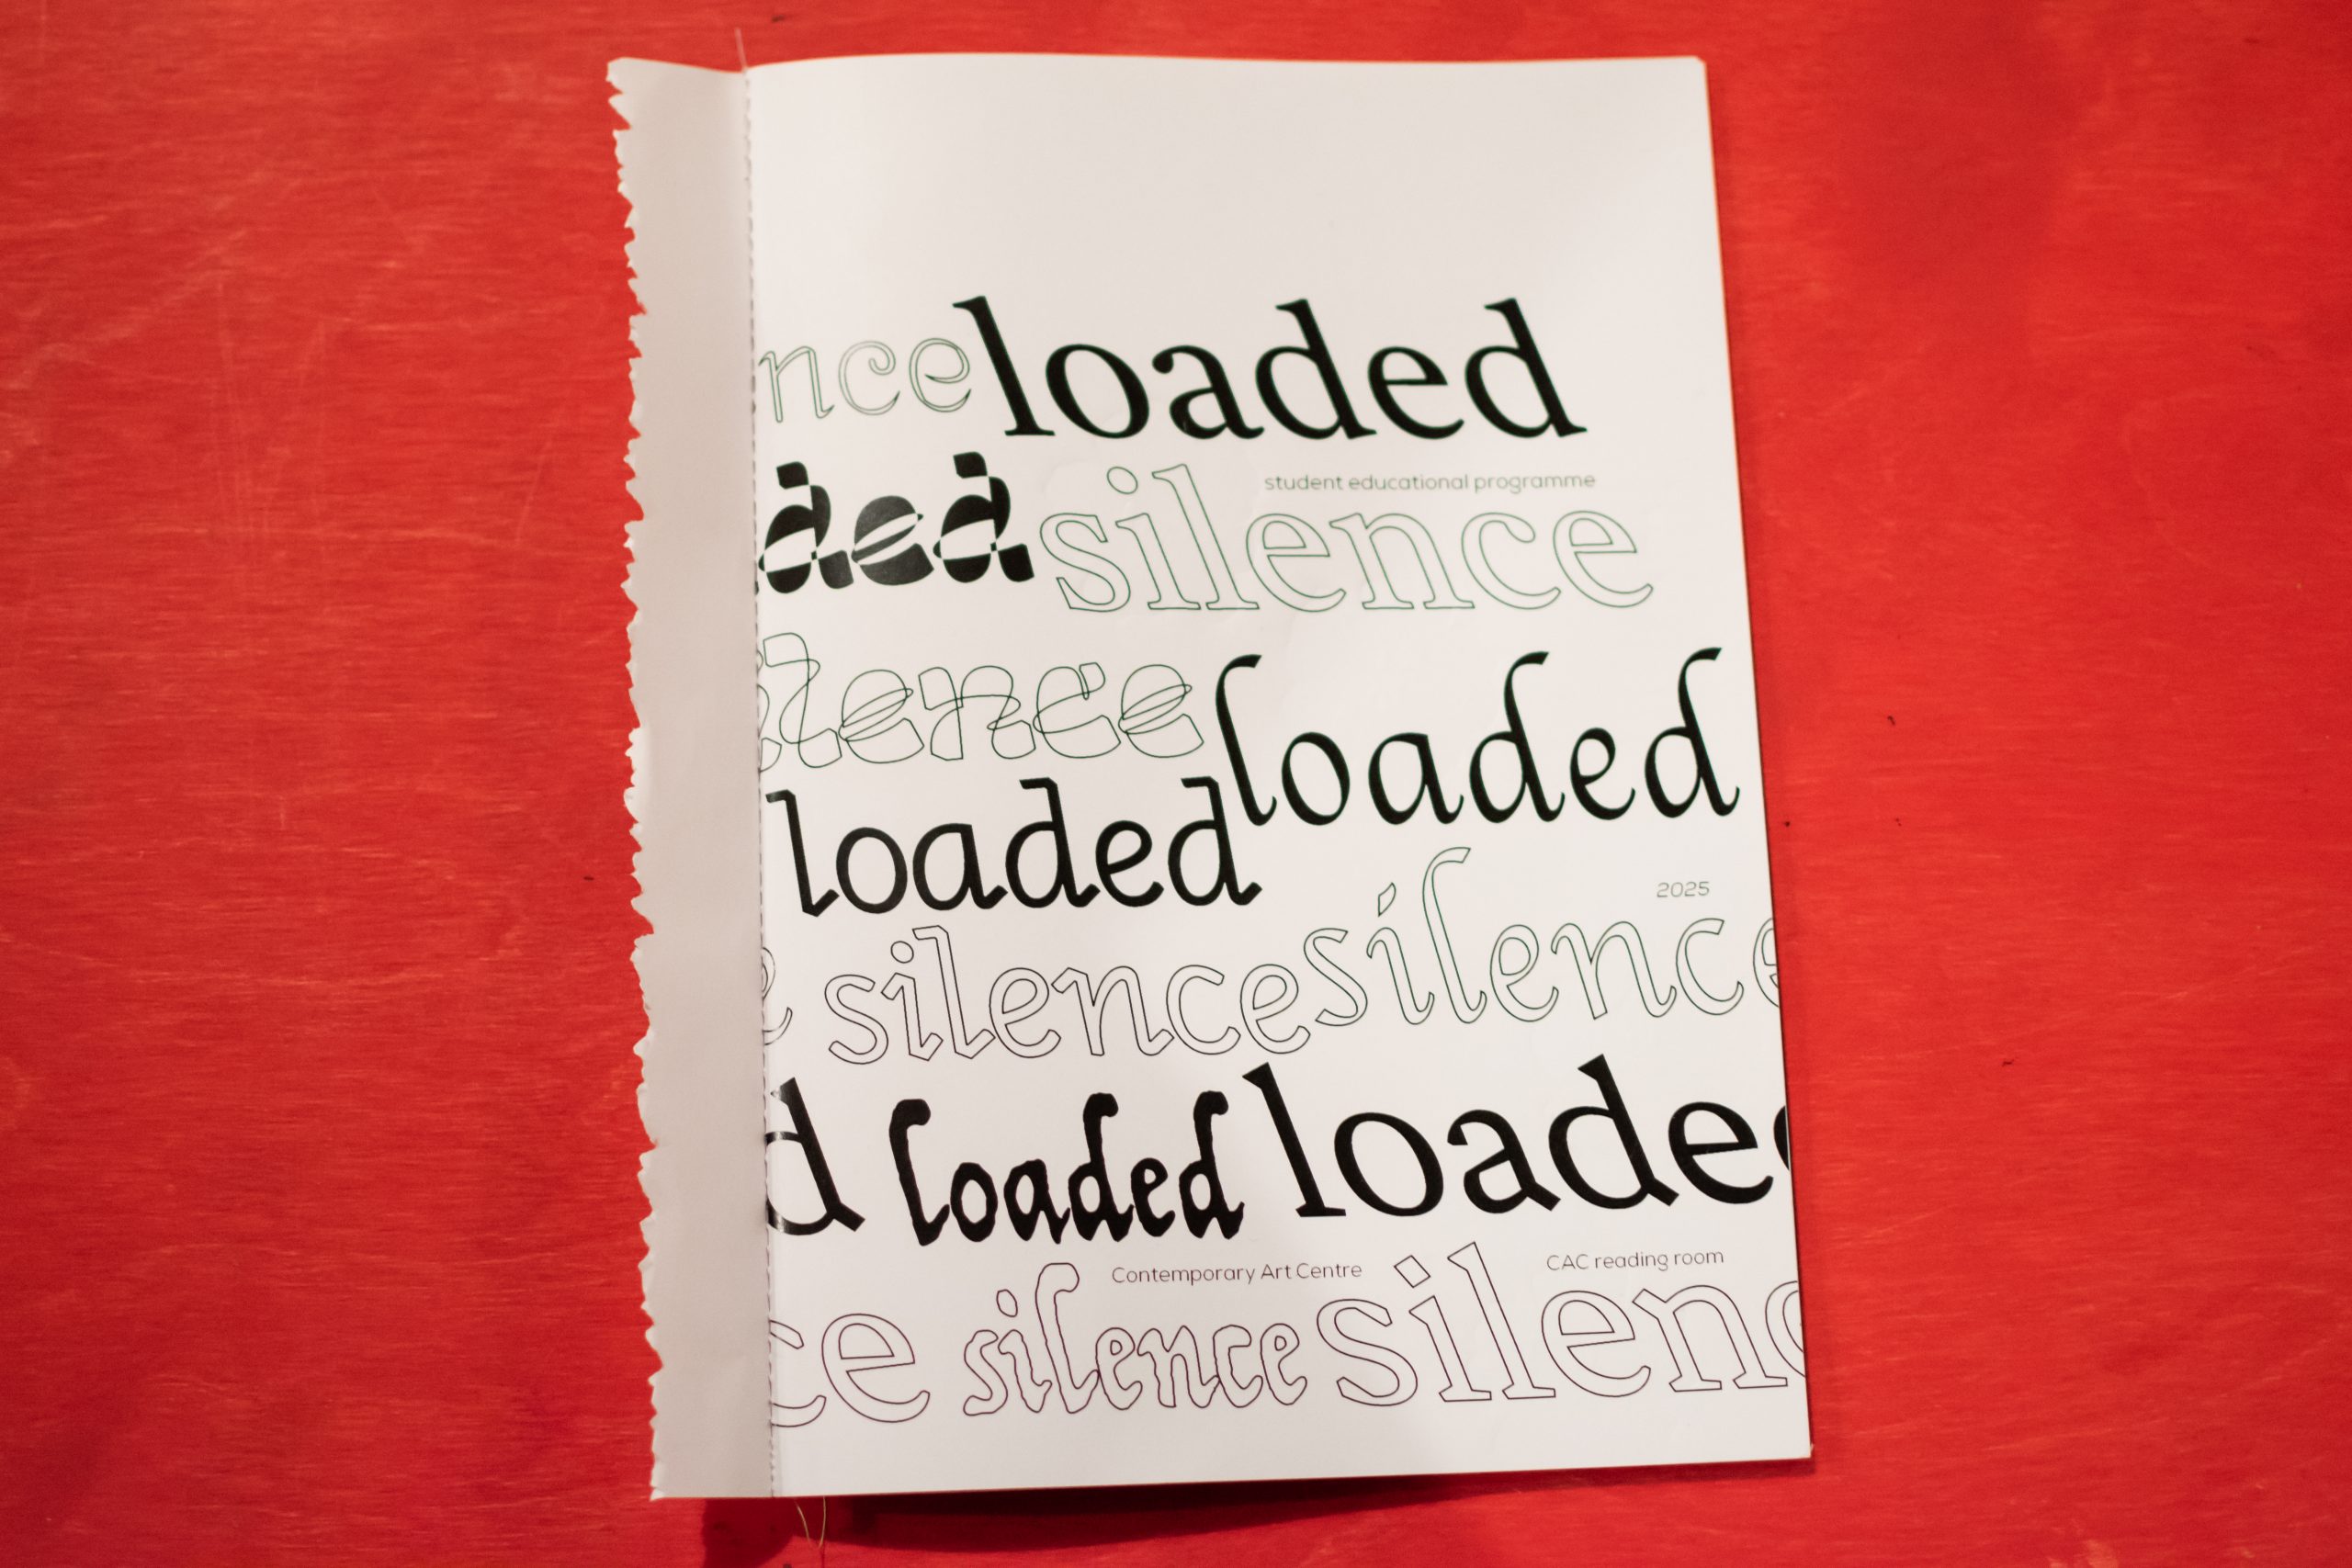 nce loaded
student educational programme
ded silence
lence loaded
loaded
2025
e silence silence
d loaded loade
Contemporary Art Centre CAC reading room
ce silence silenc